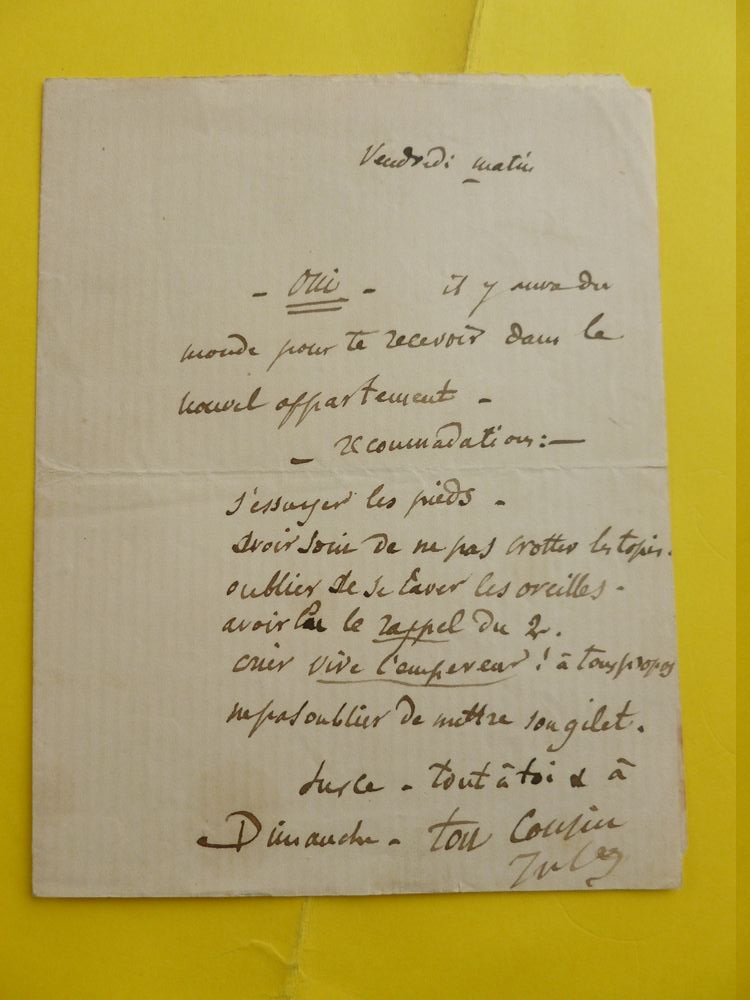 Vendredi matin
- Oui - il y aura du
monde pour te recevoir dans le
nouvel appartement -
- recommadations: -
s'essuyer les pieds -
avoir soin de ne pas crotter les tapis.
oublier de se laver les oreilles -
avoir lu le rappel du 2.
crier vive l'empereur ! à tous propos
ne pas oublier de mettre son gilet.
sur ce - tout à toi & à
Dimanche - ton Cousin
Jules